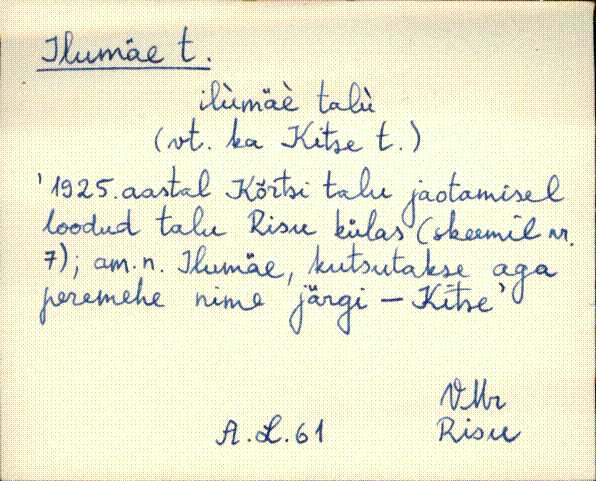 Ilumäe t.
ilùmäè talù
(vt. ka Kitse t.)
'1925. aastal Kõrtsi talu jaotamisel
loodud talu Risu külas (skeemil nr.
7); am. n. Ilumäe, kutsutakse aga
peremehe nime järgi – Kitse'
VMr
A. L. 61 Risu